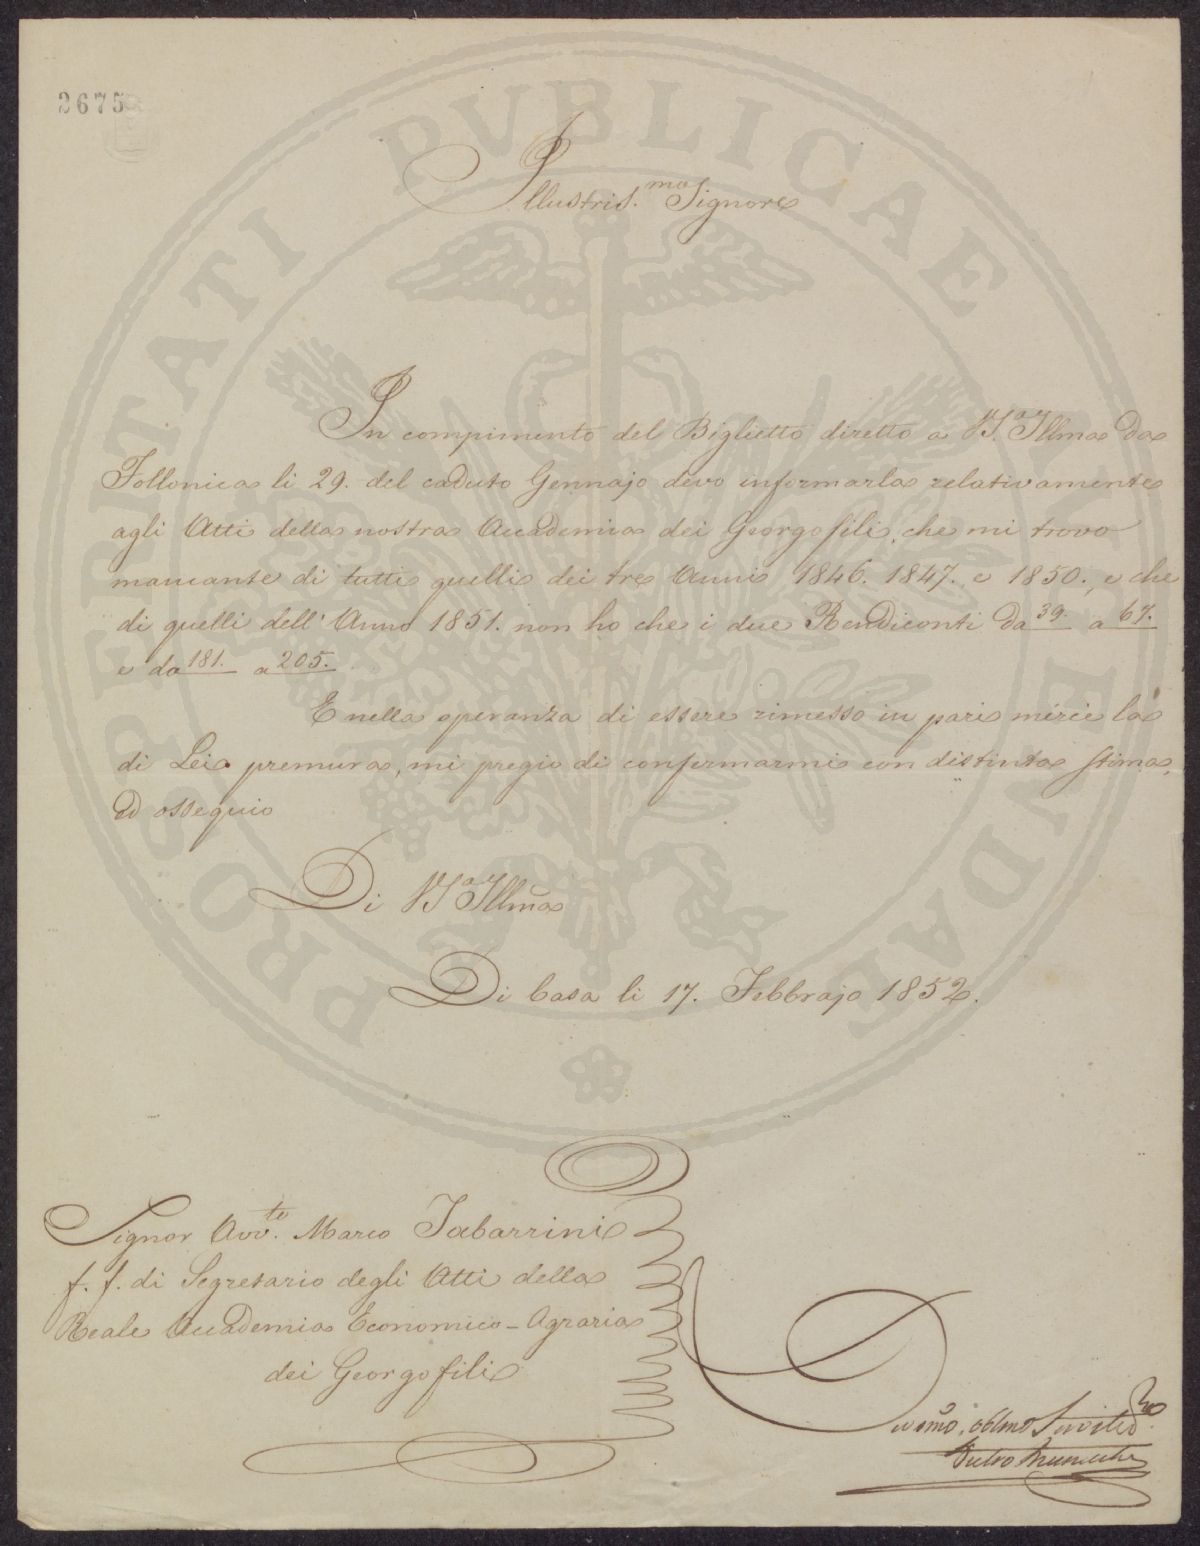 2675
PROSPERITATI PVBLICAE AVGENDAE
Illustris.mo Signore
In compimento del Biglietto diretto a VS.a Illma da
Follonica li 29. del caduto Gennajo devo informarla relativamente
agli Atti della nostra Accademia dei Georgofili, che mi trovo
mancante di tutti quelli dei tre Anni 1846. 1847. e 1850., e che
di quelli dell' Anno 1851. non ho che i due Rendiconti da 39. a 67.
e da 181. a 205.
E nella speranza di essere rimesso in pari mercè la
di Lei premura, mi pregio di confermarmi con distinta stima,
ed ossequio
Di VS.a Illma
Di Casa li 17. Febbrajo 1852.
Signor Avv.to Marco Tabarrini
f. f. di Segretario degli Atti della
Reale Accademia Economico-Agraria
dei Georgofili
Devmo, obblmo Servite
Pietro